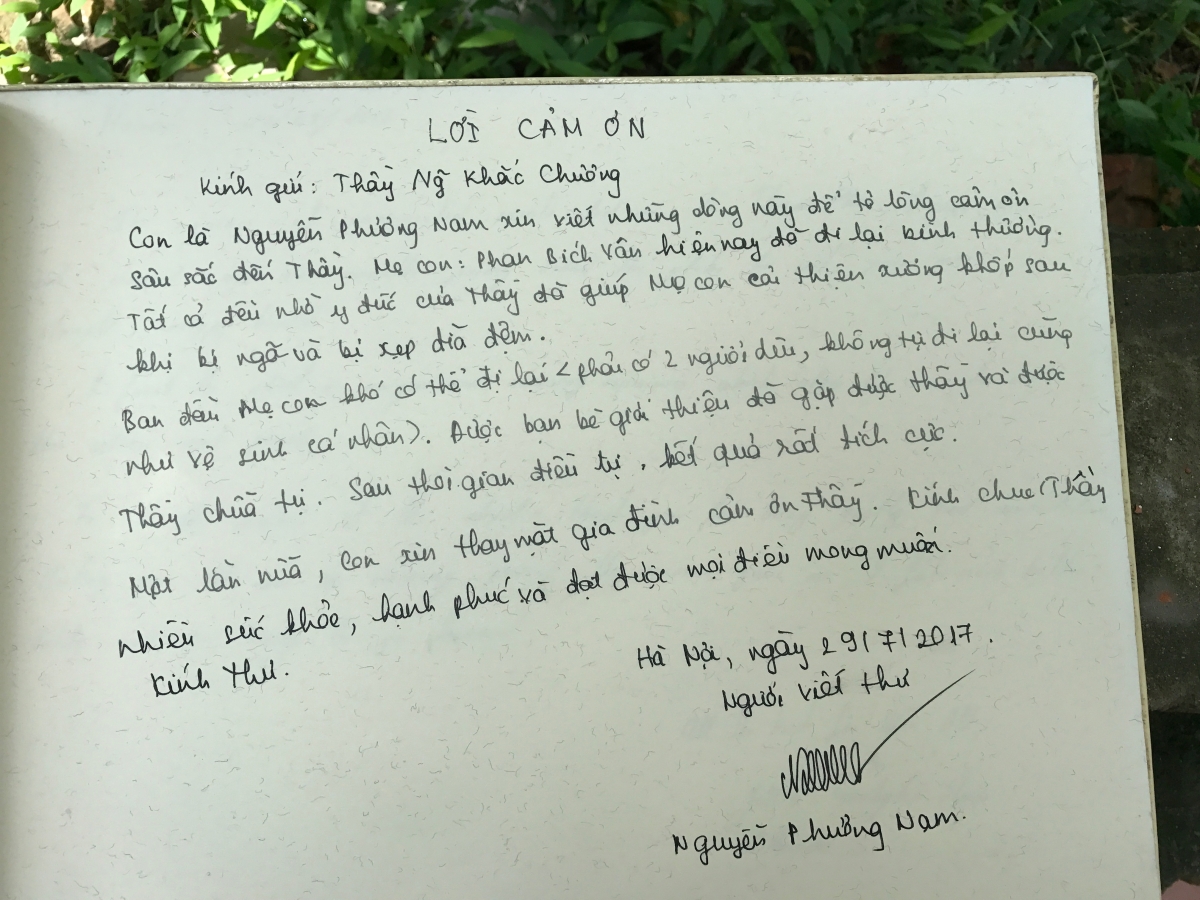 LỜI CẢM ƠN
Kính gửi: Thầy Ng̃ Khắc Chương
Con là Nguyễn Phương Nam xin viết những dòng này để tỏ lòng cảm ơn
sâu sắc đến Thầy. Mẹ con: Phan Bích Vân hiện nay đã đi lại bình thường.
Tất cả đều nhờ y đức của thầy đã giúp Mẹ con cải thiện xương khớp sau
khi bị ngã và bị xẹp đĩa đệm.
Ban đầu Mẹ con khó có thể đi lại < phải có 2 người dìu, không tự đi lại cũng
như vệ sinh cá nhân). Được bạn bè giới thiệu đã gặp được thầy và được
Thầy chữa trị. Sau thời gian điều trị, kết quả rất tích cực.
Một lần nữa, con xin thay mặt gia đình cảm ơn Thầy. Kính chúc Thầy
nhiều sức khỏe, hạnh phúc và đạt được mọi điều mong muốn.
Kính thư.
Hà Nội, ngày 29/7/2017.
Người viết thư
Nguyễn Phương Nam.